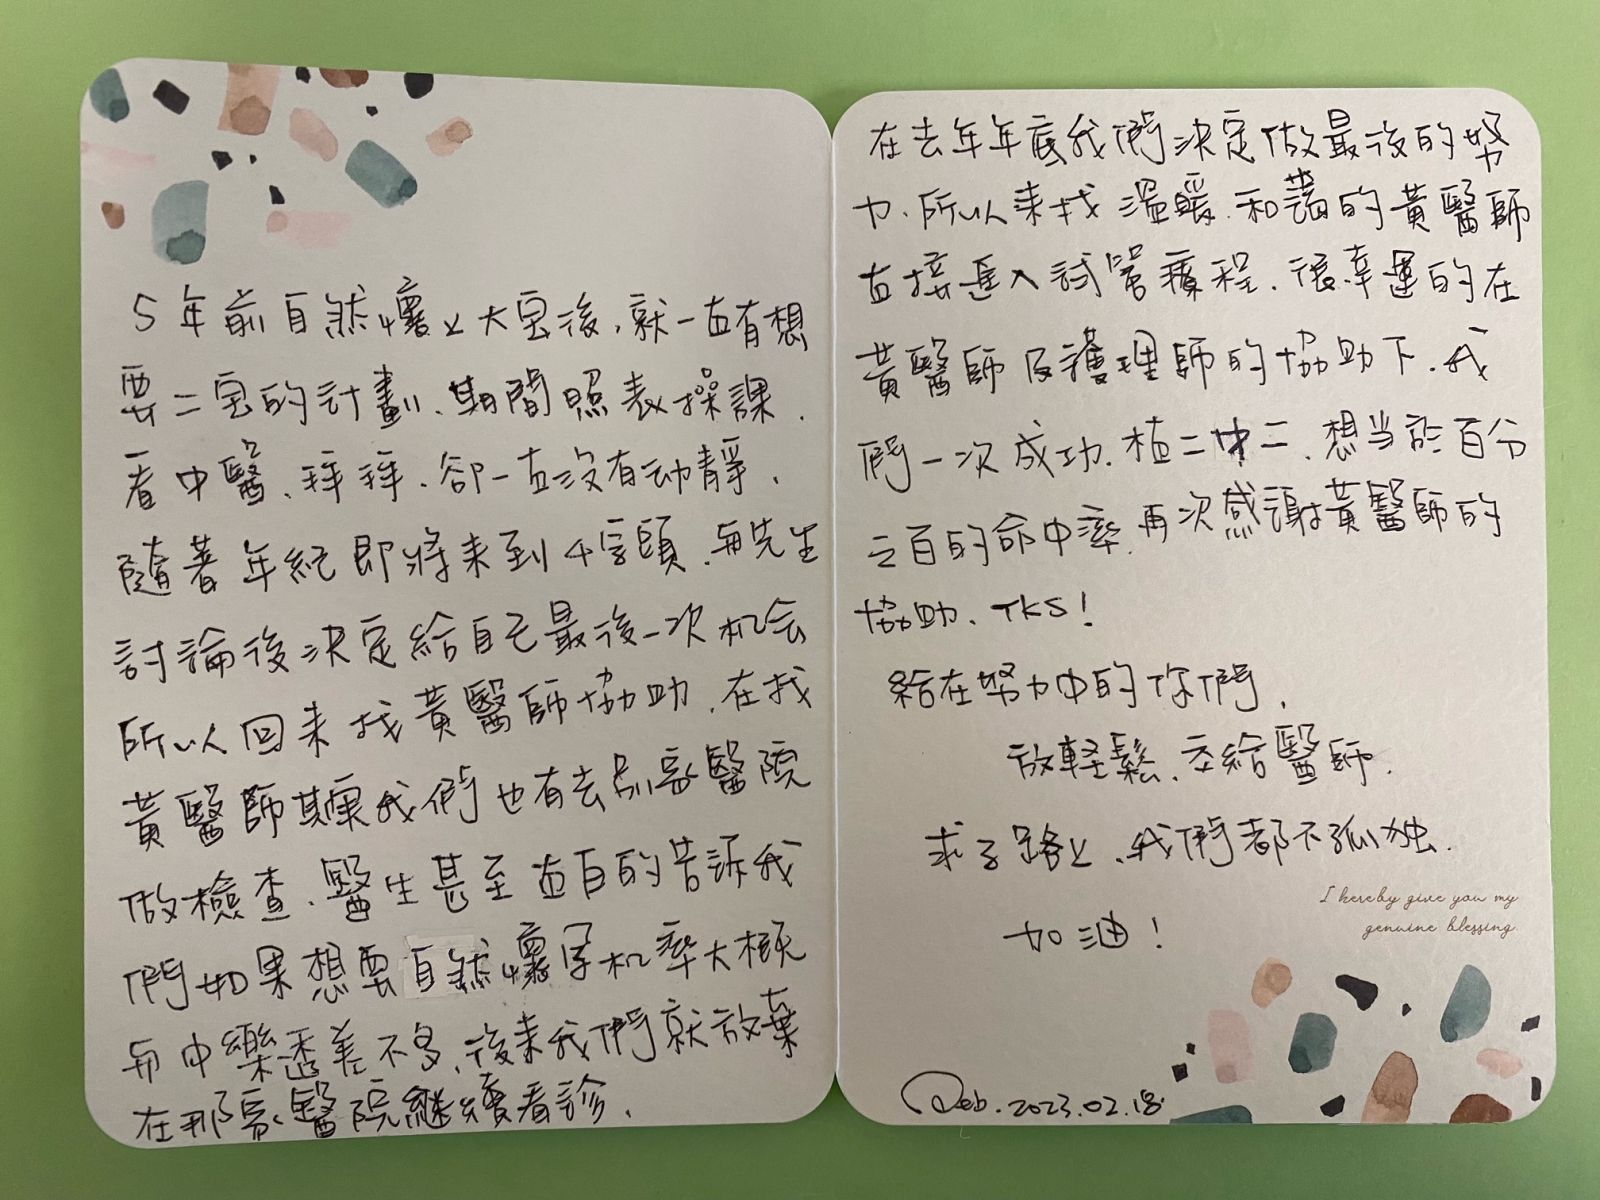 5年前自然懷上大宝後,就一直有想
要二宝的計劃、期間照表操課、
看中醫、拜拜、卻一直沒有动靜、
隨著年紀即將來到4字頭、與先生
討論後決定給自己最後一次机会
所以回來找黃醫師協助、在找
黃醫師其實我們也有去別家醫院
做檢查、醫生甚至直白的告訴我
們如果想要自然懷孕机率大概
與中樂透差不多、後來我們就放棄
在那家醫院継續看診、
在去年年底我們決定做最後的努
力、所以來找溫暖、和藹的黃醫師
直接進入試管療程、很幸運的在
黃醫師及護理師的協助下、我
們一次成功、植二中二、想当於百分
之百的命中率、再次感謝黃醫師的
協助、TKS!
給在努力中的你們、
放輕鬆、交給醫師、
求子路上、我們都不孤独、
I hereby give you my
genuine blessing
加油!
Deb. 2023.02.18